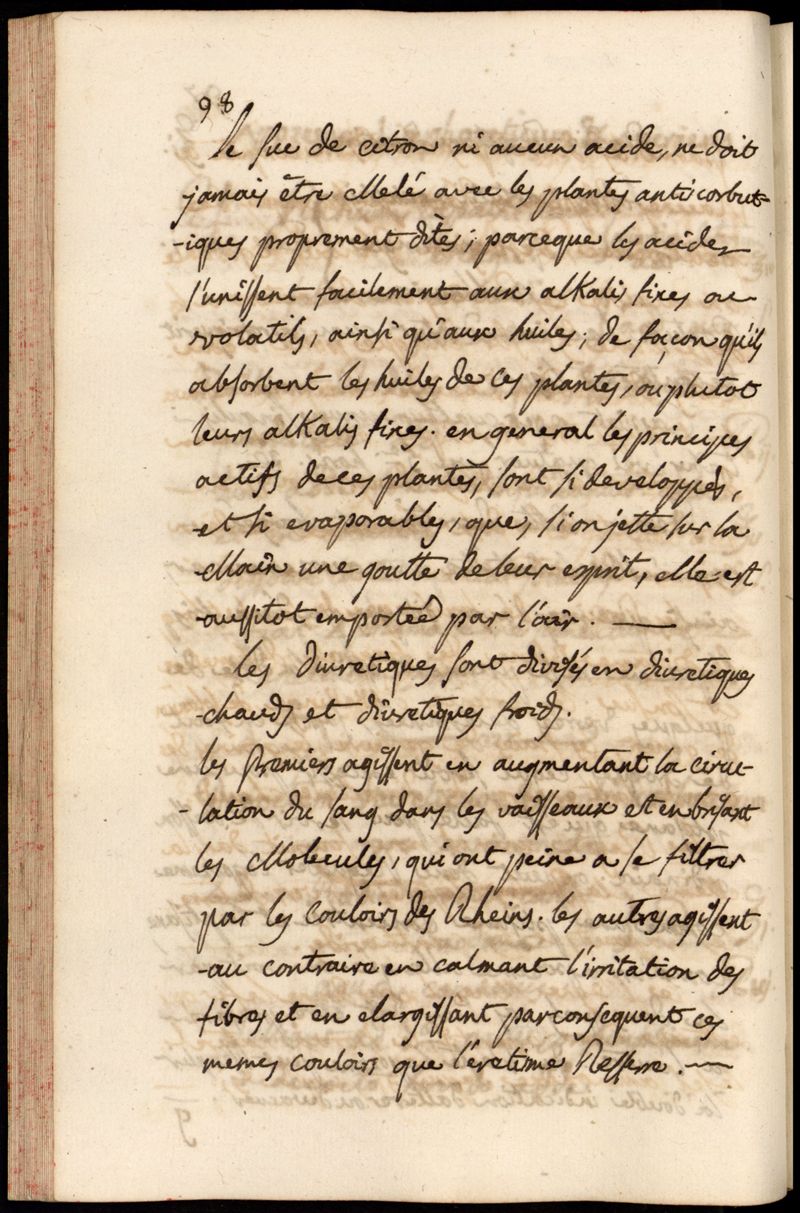 98
le suc de citron ni aucun acide, ne doit
jamais être Melé avec les plantes anti corbut=
-iques proprement dites; parceque les acides
s'unissent facilement aux alKalis fixes ou
volatils, ainsi qu'aux huiles; de façon qu'ils
absorbent les huiles de ces plantes, ou plutot
leurs alKalis fixes. en general les principes
actifs de ces plantes, sont si developpés,
et si evaporables, que, si on jette sur la
Main une goutte de leur esprit, elle est
aussitot emporteé par l'air. —
les diuretiques sont divisés en diuretiques
chauds et diuretiques froids.
les Premiers agissent en augmentant la circu-
-lation du sang dans les vaisseaux et en brisant
les Molecules, qui ont peine a se filtrer
par les Couloirs des Rheins. les autres agissent
au contraire en calmant l'irritation des
fibres et en elargissant par consequent ces
memes couloirs que l'éretisme Resserre. —